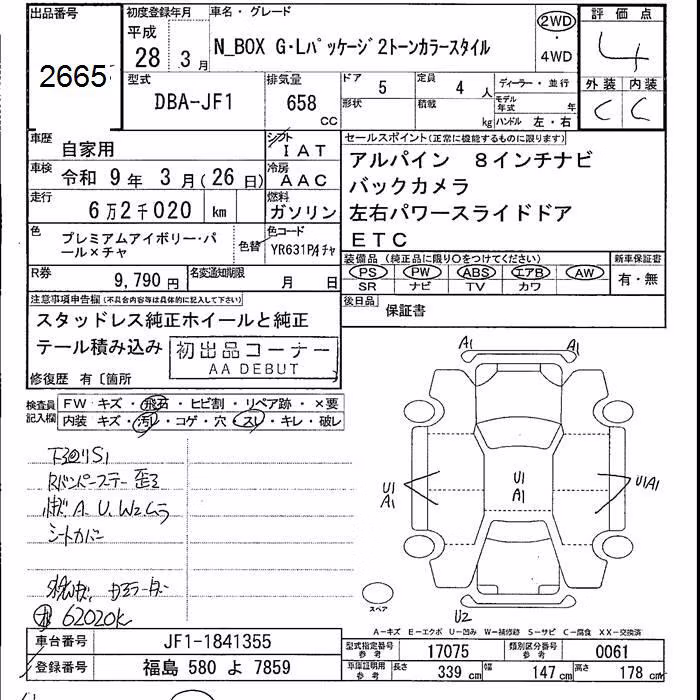 出品番号
2665
初度登録年月
平成
28 3月
車名・グレード
N_BOX G・Lパッケージ2トーンカラースタイル
2WD
・
4WD
評価点
4
外装 内装
C C
型式
DBA-JF1
排気量
658
cc
ドア 5
定員 4人
ディーラー・並行
形状
積載 kg
モデル年式 年
ハンドル 左・右
車歴 自家用
シフト IAT
車検 令和 9年 3月(26日)
冷房 AAC
走行 6万2千020 km
燃料 ガソリン
色 プレミアムアイボリー・パール×チャ
色替
色コード YR631P/チャ
R券 9,790円
名変通知期限 月 日
セールスポイント(正常に機能するものに限ります)
アルパイン 8インチナビ
バックカメラ
左右パワースライドドア
ETC
装備品 (純正品に限り○をつけてください)
PS PW ABS エアB AW
SR ナビ TV カワ
新車保証書
有・無
後日品 保証書
注意事項申告欄(不具合内容等は具体的に記入して下さい)
スタッドレス純正ホイールと純正
テール積み込み
初出品コーナー
AA DEBUT
修復歴 有〔箇所
検査員記入欄
FW キズ・飛石・ヒビ割・リペア跡・×要
内装 キズ・汚レ・コゲ・穴・スレ・キレ・破レ
下回りS1
Rバンパーステー 歪る
A. U. W2ムラ
シートカバー
62020K
A1
A1
U1
A1
U1
A1
U1A1
U2
スペア
A－キズ E－エクボ U－凹み W－補修跡 S－サビ C－腐食 XX－交換済
車台番号 JF1-1841355
登録番号 福島 580 よ 7859
型式指定番号 参考 17075
類別区分番号 参考 0061
車庫証明用 参考 長さ 339 cm 幅 147 cm 高さ 178 cm